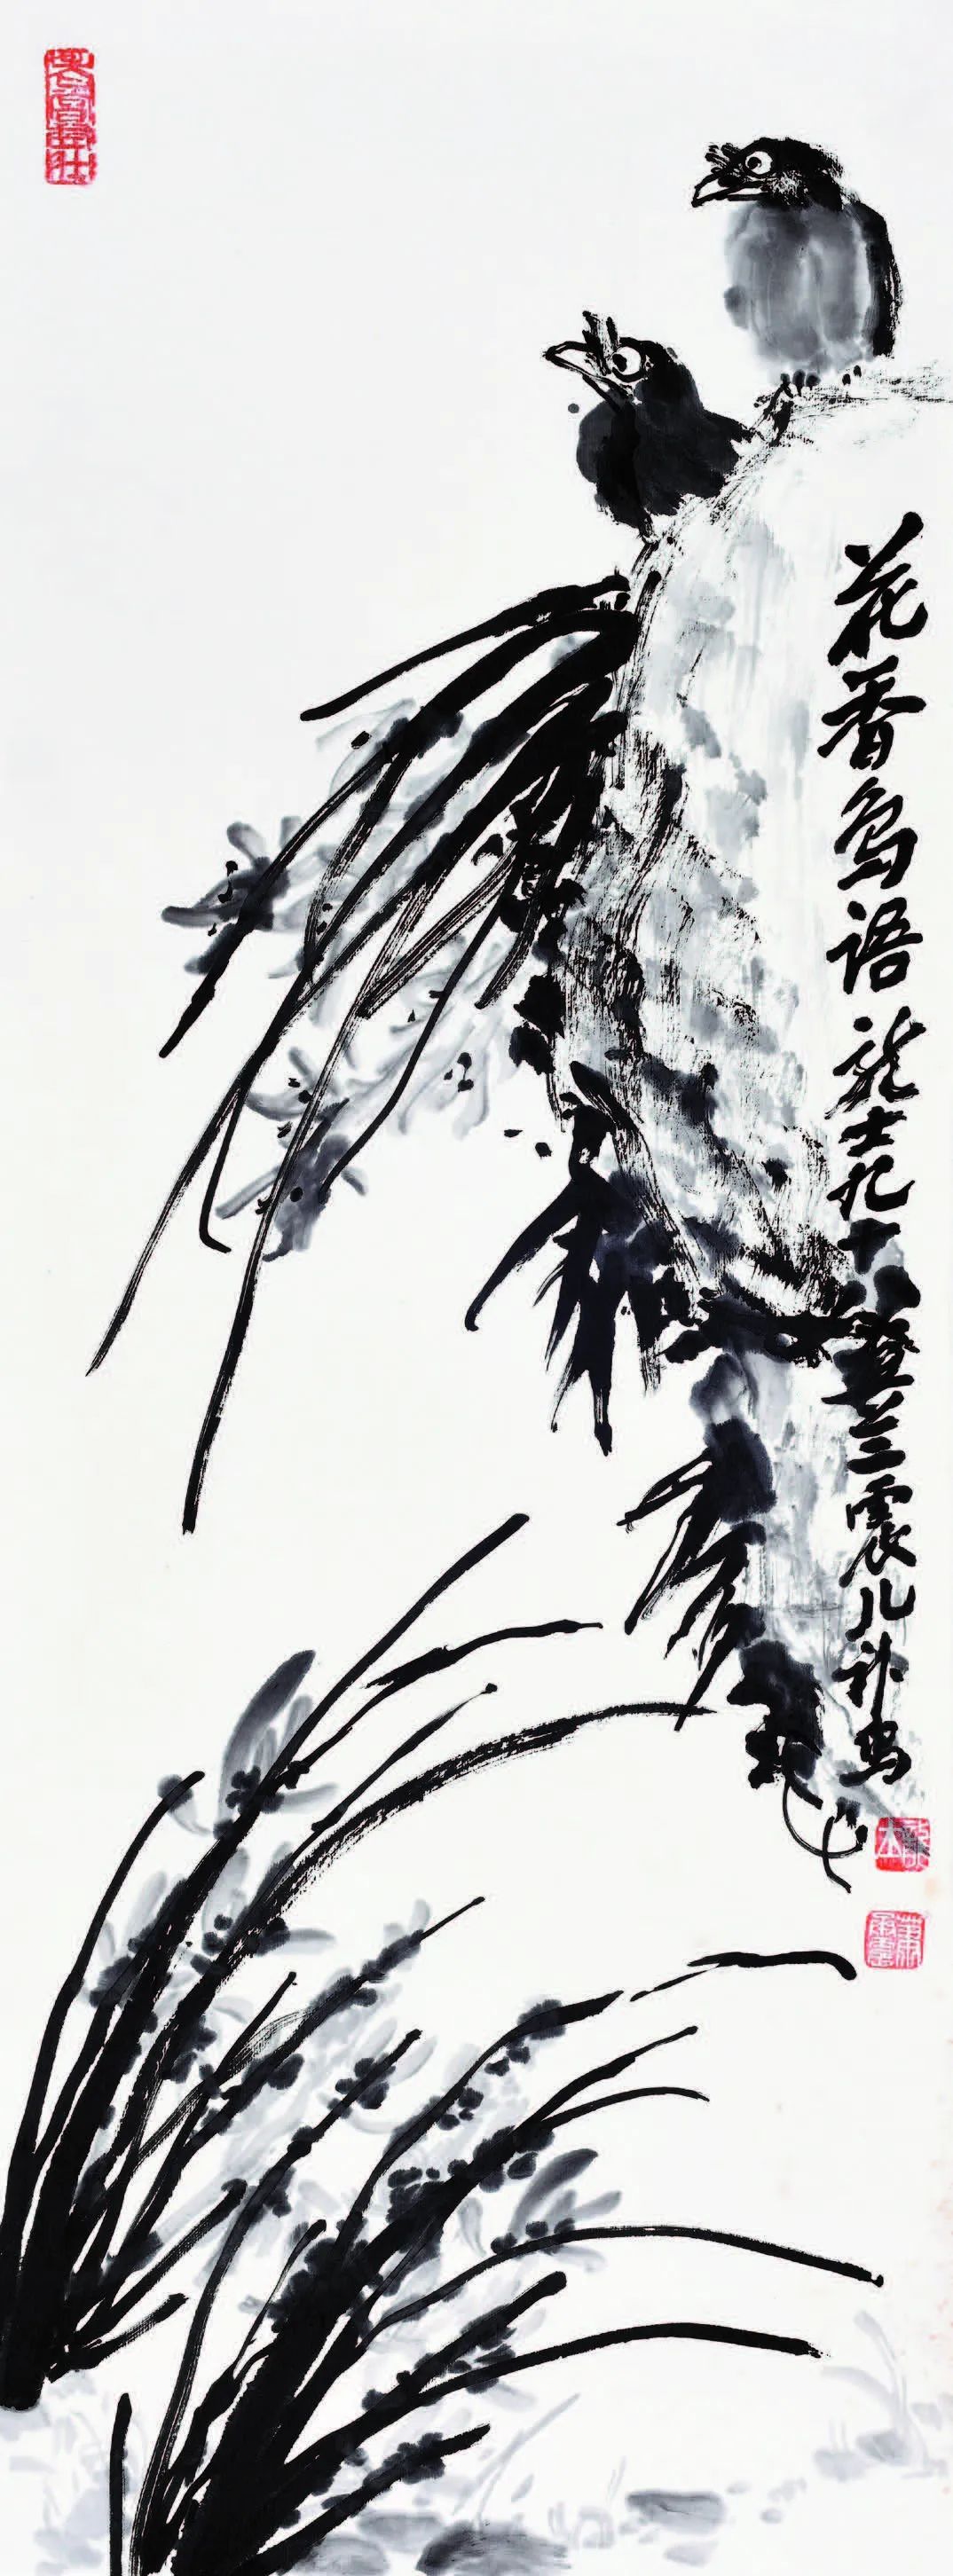 花香鸟语 龙士九十八 兰 震儿补鸟